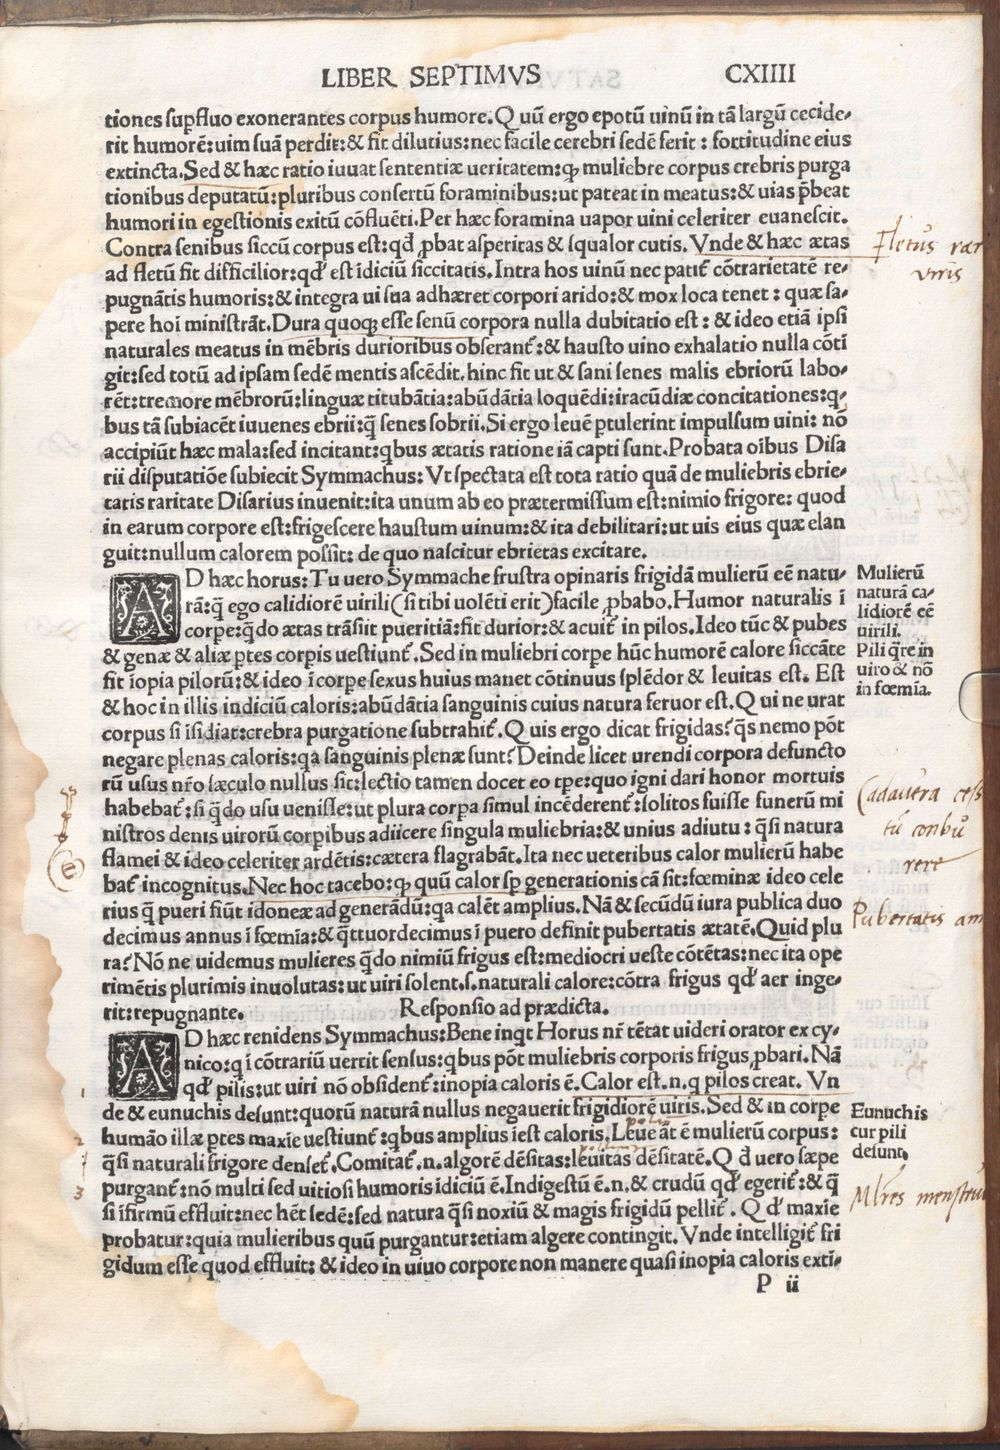 LIBER SEPTIMVS CXIIII
tiones supfluo exonerantes corpus humore. Q uũ ergo epotũ uinũ in tã largũ cecide-
rit humorẽ: uim suã perdit: & fit dilutius: nec facile cerebri sedẽ ferit: fortitudine eius
extincta. Sed & hæc ratio iuuat sententiæ ueritatem: ꝙ muliebre corpus crebris purga
tionibus deputatũ: pluribus consertũ foraminibus: ut pateat in meatus: & uias p̃beat
humori in egestionis exitũ cõfluẽti. Per hæc foramina uapor uini celeriter euanescit.
Contra senibus siccũ corpus est: qđ ꝓbat asperitas & squalor cutis. Vnde & hæc ætas
ad fletũ fit difficilior: qđ est ĩdiciũ siccitatis. Intra hos uinũ nec patit̃ cõtrarietatẽ re-
pugnãtis humoris: & integra ui sua adhæret corpori arido: & mox loca tenet: quæ sa-
pere hoĩ ministrãt. Dura quoqꝫ esse senũ corpora nulla dubitatio est: & ideo etiã ipsi
naturales meatus in mẽbris durioribus obserant̃: & hausto uino exhalatio nulla cõti
git: sed totũ ad ipsam sedẽ mentis ascẽdit. hinc fit ut & sani senes malis ebriorũ labo-
rẽt: tremore mẽbrorũ: linguæ titubãtia: abũdãtia loquẽdi: iracũdiæ concitationes: q-
bus tã subiacẽt iuuenes ebrii: q̃ senes sobrii. Si ergo leuẽ ptulerint impulsum uini: nõ
accipiũt hæc mala: sed incitant: qbus ætatis ratione iã capti sunt. Probata oĩbus Disa
rii disputatiõe subiecit Symmachus: Vt spectata est tota ratio quã de muliebris ebrie-
taris raritate Disarius inuenit: ita unum ab eo prætermissum est: nimio frigore: quod
in earum corpore est: frigescere haustum uinum: & ita debilitari: ut uis eius quæ elan
guit: nullum calorem possit: de quo nascitur ebrietas excitare.
AD hæc horus: Tu uero Symmache frustra opinaris frigidã mulierũ eẽ natu-
rã: q̃ ego calidiorẽ uirili (si tibi uolẽti erit) facile ꝓbabo. Humor naturalis ĩ
corpe: q̃do ætas trãsiit pueritiã: fit durior: & acuit̃ in pilos. Ideo tũc & pubes
& genæ & aliæ ptes corpis uestiunt̃. Sed in muliebri corpe hũc humorẽ calore siccãte
fit ĩopia pilorũ: & ideo ĩ corpe sexus huius manet cõtinuus splẽdor & leuitas est. Est
& hoc in illis indiciũ caloris: abũdãtia sanguinis cuius natura feruor est. Q ui ne urat
corpus si ĩsidiat: crebra purgatione subtrahit̃. Q uis ergo dicat frigidas? q̃s nemo põt
negare plenas caloris: qa sanguinis plenæ sunt? Deinde licet urendi corpora defuncto
rũ usus nr̃o sæculo nullus sit: lectio tamen docet eo tpe: quo igni dari honor mortuis
habebat̃: si q̃do usu uenisse: ut plura corpa simul incẽderent̃: solitos fuisse funerũ mi
nistros denis uirorũ corpibus adiicere singula muliebria: & unius adiutu: q̃si natura
flamei & ideo celeriter ardẽtis: cætera flagrabãt. Ita nec ueteribus calor mulierũ habe
bat̃ incognitus. Nec hoc tacebo: ꝙ quũ calor sp generationis cã sit: fœminæ ideo cele
rius q̃ pueri fiũt idoneæ ad generãdũ: qa calẽt amplius. Nã & secũdũ iura publica duo
decimus annus ĩ fœmĩa: & q̃ttuordecimus ĩ puero definit pubertatis ætatẽ. Quid plu
ra? Nõ ne uidemus mulieres q̃do nimiũ frigus est: mediocri ueste cõtẽtas: nec ita ope
rimẽtis plurimis inuolutas: ut uiri solent. s. naturali calore: cõtra frigus qđ aer inge-
rit: repugnante. Responsio ad prædicta.
AD hæc renidens Symmachus: Bene inqt Horus nr̃ tẽtat uideri orator ex cy-
nico: q ĩ cõtrariũ uertit sensus: qbus põt muliebris corporis frigus ꝓbari. Nã
qđ pilis: ut uiri nõ obsident̃: inopia caloris ẽ. Calor est. n. q pilos creat. Vn
de & eunuchis desunt: quorũ naturã nullus negauerit frigidiorẽ uiris. Sed & in corpe
humão illæ ptes maxĩe uestiunt̃: qbus amplius ĩest caloris. Leue ãt ẽ mulierũ corpus:
q̃si naturali frigore denset̃. Comitat̃. n. algorẽ dẽsitas: leuitas dẽsitatẽ. Q đ uero sæpe
purgant̃: nõ multi sed uitiosi humoris ĩdiciũ ẽ. Indigestũ ẽ. n. & crudũ qđ egerit̃: & q̃
si ĩfirmũ effluit: nec hẽt sedẽ: sed natura q̃si noxiũ & magis frigidũ pellit̃. Q đ maxĩe
probatur: quia mulieribus quũ purgantur: etiam algere contingit. Vnde intelligit̃ fri
gidum esse quod effluit: & ideo in uiuo corpore non manere quasi inopia caloris exti-
P ii
Fletus rar
viris
Mulierũ
naturã ca-
lidiorẽ eẽ
uirili.
Pili q̃re in
uiro & nõ
in fœmĩa.
Cadauera
conbu
rere
Pubertatis
Eunuchis
cur pili
desunt.
Ml̃res menstru
1
2
3